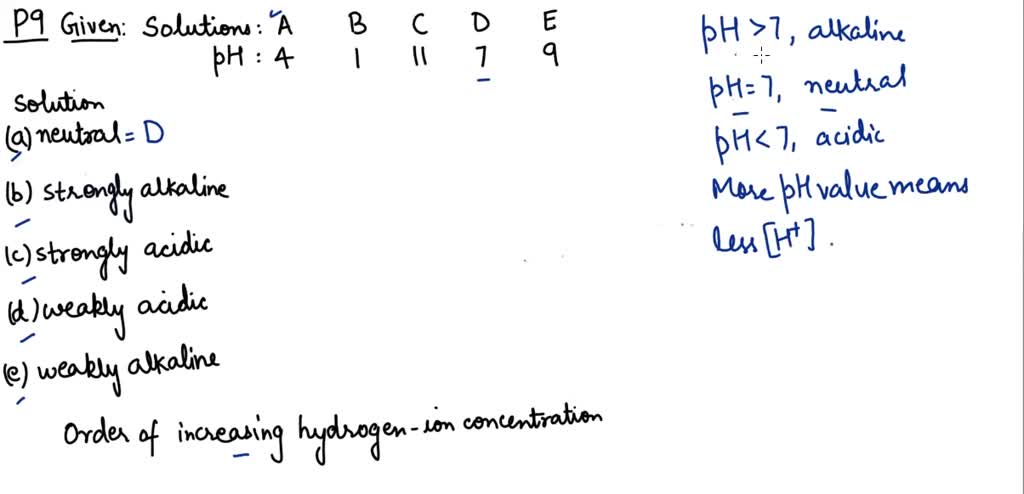 P9 Given: Solutions: A B C D E
pH: 4 1 11 7 9
Solution
(a) neutral = D
(b) strongly alkaline
(c) strongly acidic
(d) weakly acidic
(e) weakly alkaline
Order of increasing hydrogen-ion concentration
pH > 7, alkaline
pH = 7, neutral
pH < 7, acidic
More pH value means
less [H⁺].